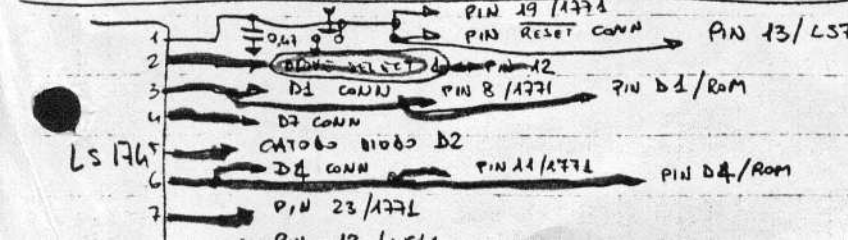 PIN 19/1771
1 0,47 PIN RESET CONN PIN 13/LS7
2 DRIVE SELECT 1 PIN 12
3 D1 CONN PIN 8/1771 PIN D1/ROM
4 D7 CONN
LS174 5 CATODO DIODO D2
6 D4 CONN PIN 11/1771 PIN D4/ROM
7 PIN 23/1771